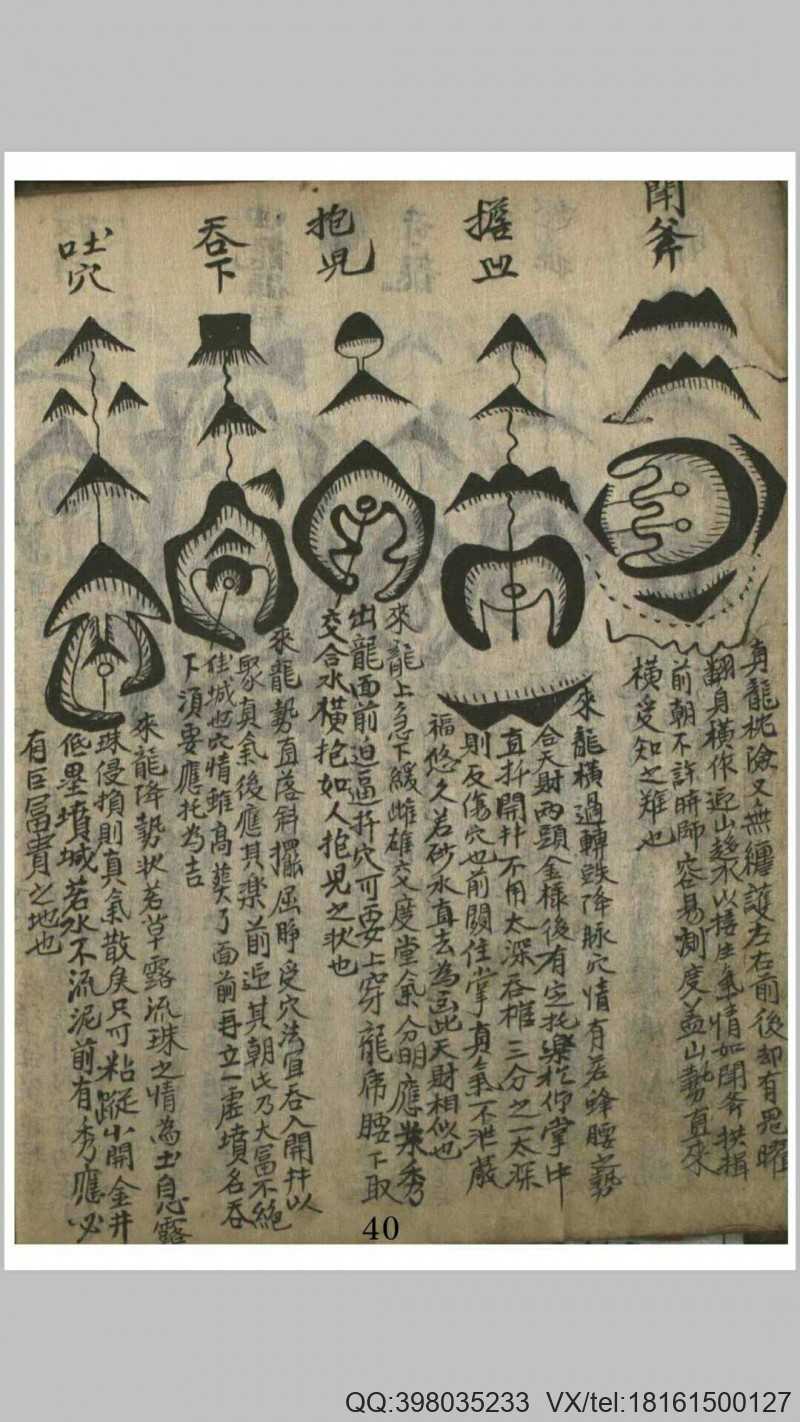 開斧
真龍桃險又無纏護左右前後却有鬼曜
翻身橫作逆山趂水以接生氣情如開斧拱揖
前朝不許時師容易測度盖山勢直來
橫受知之难也
來龍橫過轉跌降脉穴情有若蜂腰之勢
合天財兩頭金樣後有定托樂於仰掌中
直扦開井不用太深吞棺三分之一太深
則反傷穴也前関住掌真氣不泄蔭
福悠久若砂水真去為凶此天財相似也
抱児
來龍上急下緩雌雄交度堂氣分明應案秀
出龍面前迫逼扦穴可要上穿龍席腰下取
交合水橫抱如人抱児之狀也
吞下
來龍勢直落斜擺屈睜受穴法宜吞入開井以
聚真氣後應其樂前迎其朝此乃大冨不絕
佳城也穴情雖高葬了面前再立一虛墳名吞
下須要應托為吉
吐穴
來龍降勢狀若草露流珠之情為土息露
珠侵損則真氣散矣只可粘蹤小開金井
低壘墳堿若水不流泥前有秀應必
有巨冨貴之地也
40
QQ:398035233 VX/tel:18161500127